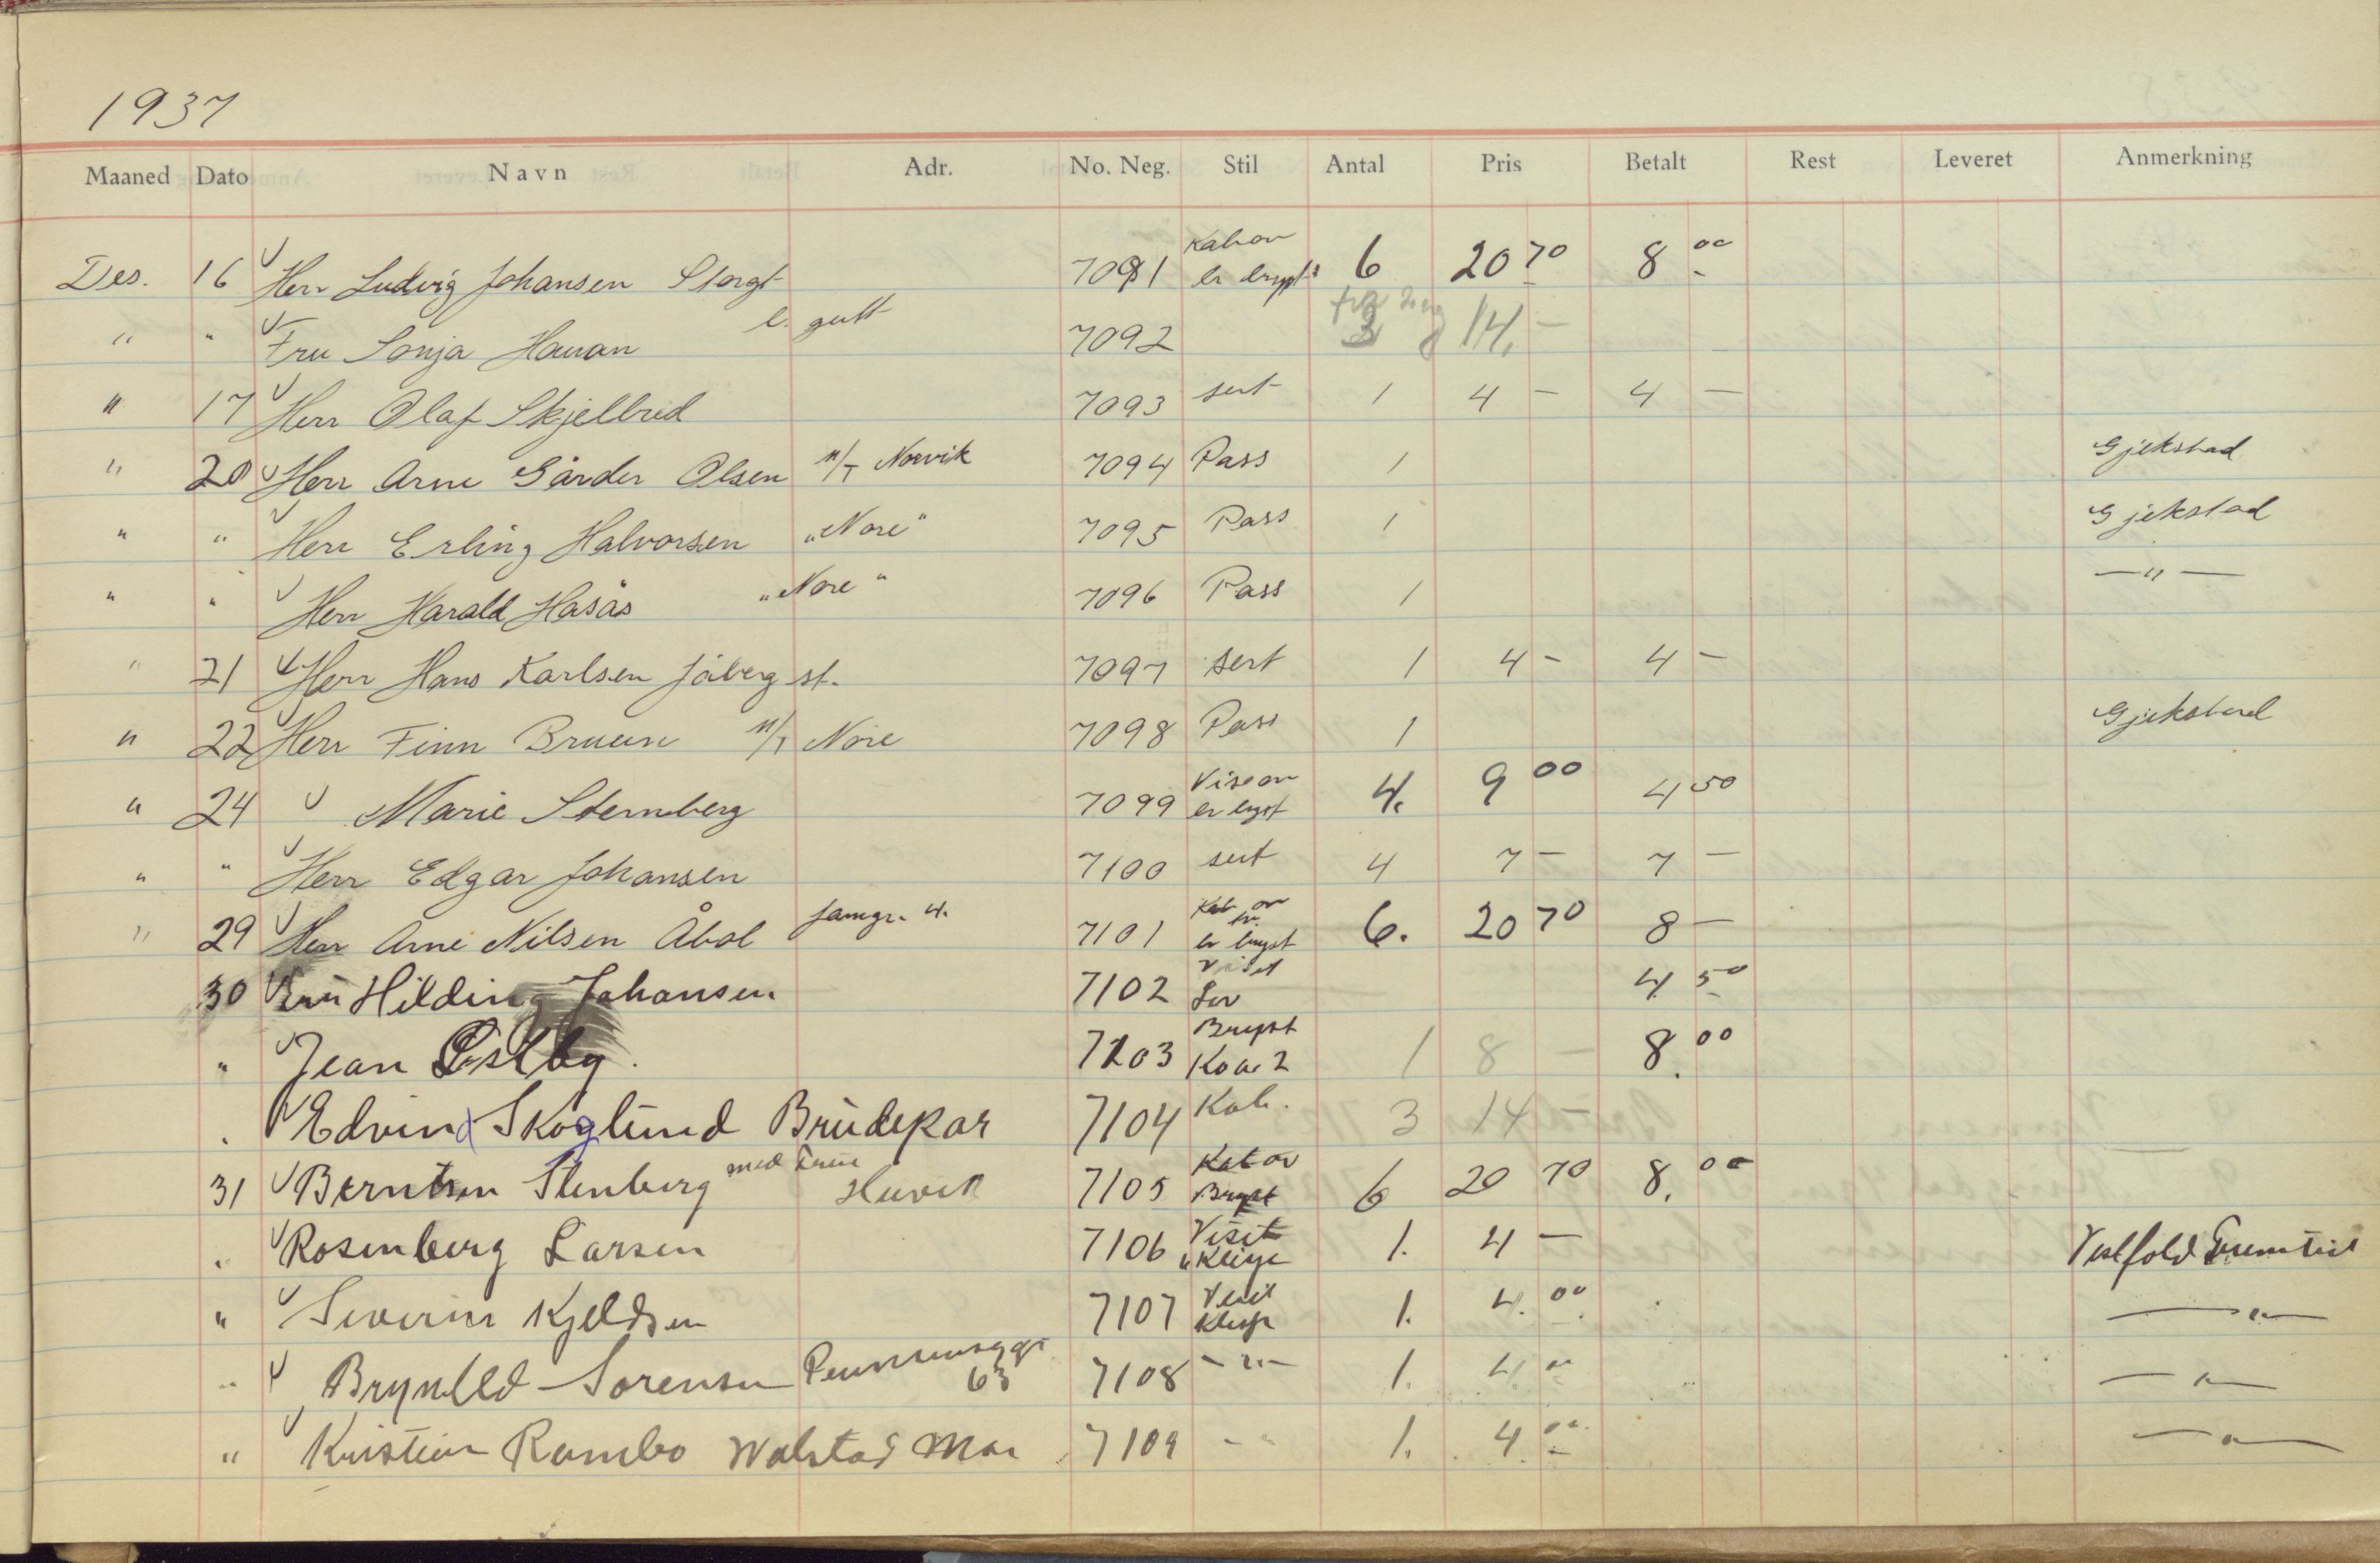 1937
Maaned Dato Navn Adr. No. Neg. Stil Antal Pris Betalt Rest Leveret Anmerkning
Des. 16 Herr Ludvig Johansen Storgt 7091 Kab ov er bryst 6 20 70 8 00
" " Fru Sonja Hauan l. gutt 7092 3 14, —
" 17 Herr Olaf Skjelbred 7093 sert 1 4 — 4 —
" 20 Herr Arne Gårder Olsen M/T Norvik 7094 Pass 1 Gjekstad
" " Herr Erling Halvorsen "Nore" 7095 Pass 1 Gjekstad
" " Herr Harald Hasås "Nore" 7096 Pass 1 — " —
" 21 Herr Hans Karlsen Jåberg st. 7097 sert 1 4 — 4 —
" 22 Herr Finn Bruun M/T Nore 7098 Pass 1 Gjekstad
" 24 Marie Sternberg 7099 Vis ov er bryst 4. 9 00 4 50
" " Herr Edgar Johansen 7100 sert 4 7 — 7 —
" 29 Herr Arne Nilsen Åbol 7101 Kab ov er bryst 6. 20 70 8 —
30 Hilding Johansen 7102 Visit 4 50
" Jean Østby. 7103 Bryst 1 8 — 8. 00
" Edvind Skoglund Brudepar 7104 Kab. 3 14 —
31 Berntsen Stenberg med Frue Huvik 7105 Kab ov Bryst 6 20 70 8. 00
" Rosenberg Larsen 7106 Visit 1. 4 — Vestfold Fremtid
" Severin Kjeldsen 7107 Visit 1. 4. 00 — " —
" Brynild Sorensen 63 7108 — " — 1. 4. 00 — " —
" Kristian Rambo Walstad 7109 — " 1. 4. 00 — " —